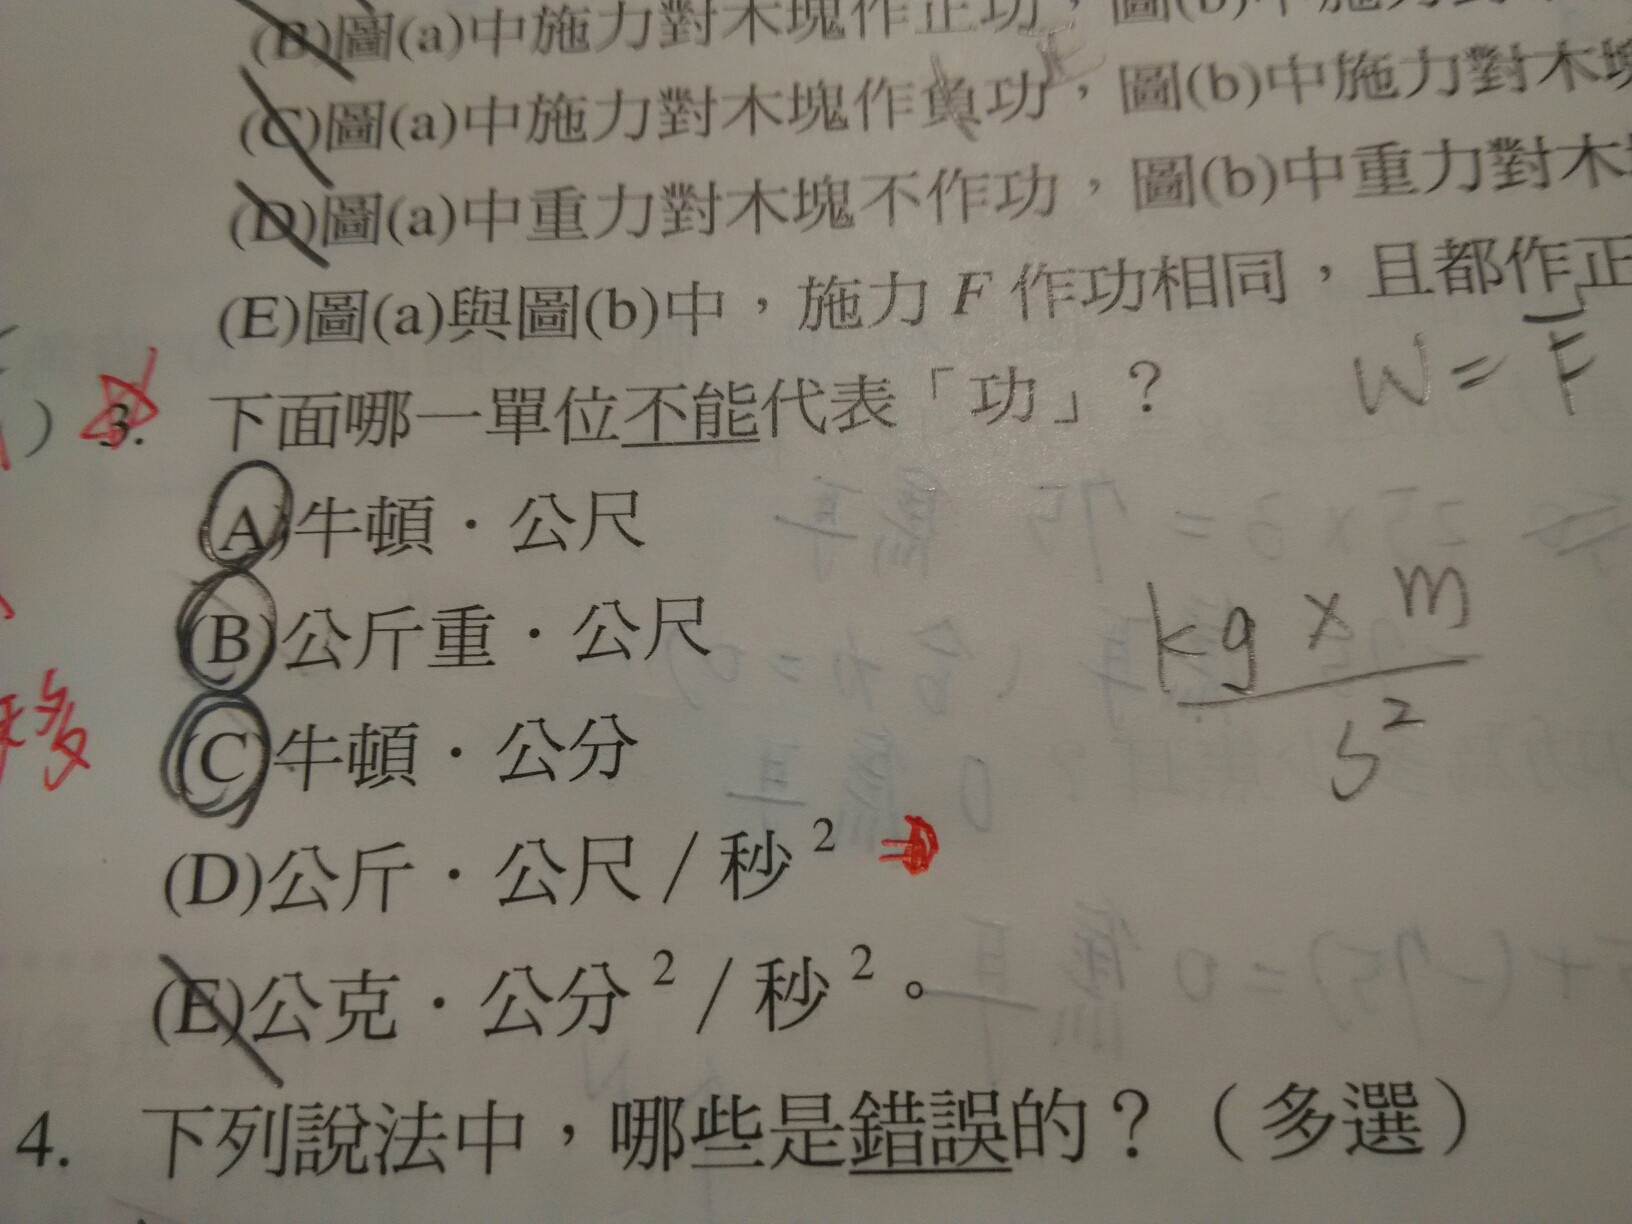 (B)圖(a)中施力對木塊作正功，圖(b)中施力對
(C)圖(a)中施力對木塊作負功，圖(b)中施力對木塊
(D)圖(a)中重力對木塊不作功，圖(b)中重力對木
(E)圖(a)與圖(b)中，施力 F 作功相同，且都作正
W = F
) 3. 下面哪一單位不能代表「功」？
(A)牛頓．公尺
(B)公斤重．公尺
kg × m / s²
移
(C)牛頓．公分
(D)公斤．公尺 / 秒²
(E)公克．公分² / 秒²。
4. 下列說法中，哪些是錯誤的？（多選）